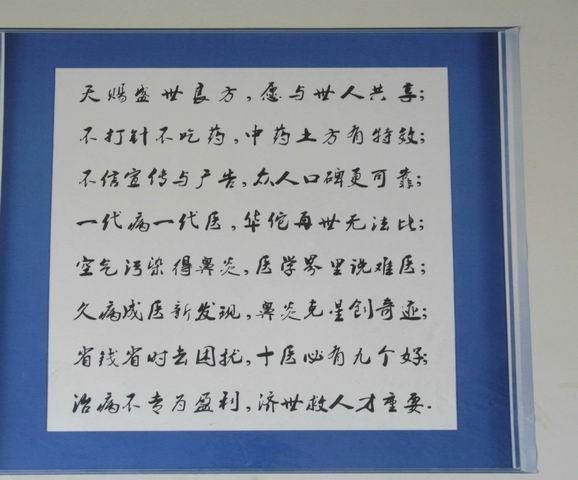 天赐盛世良方,愿与世人共享;
不打针不吃药,中药土方有特效;
不信宣传与广告,众人口碑更可靠;
一代病一代医,华佗再世无法比;
空气污染得鼻炎,医学界里说难医;
久病成医新发现,鼻炎克星创奇迹;
省钱省时去困扰,十医必有九个好;
治病不专为盈利,济世救人才重要.